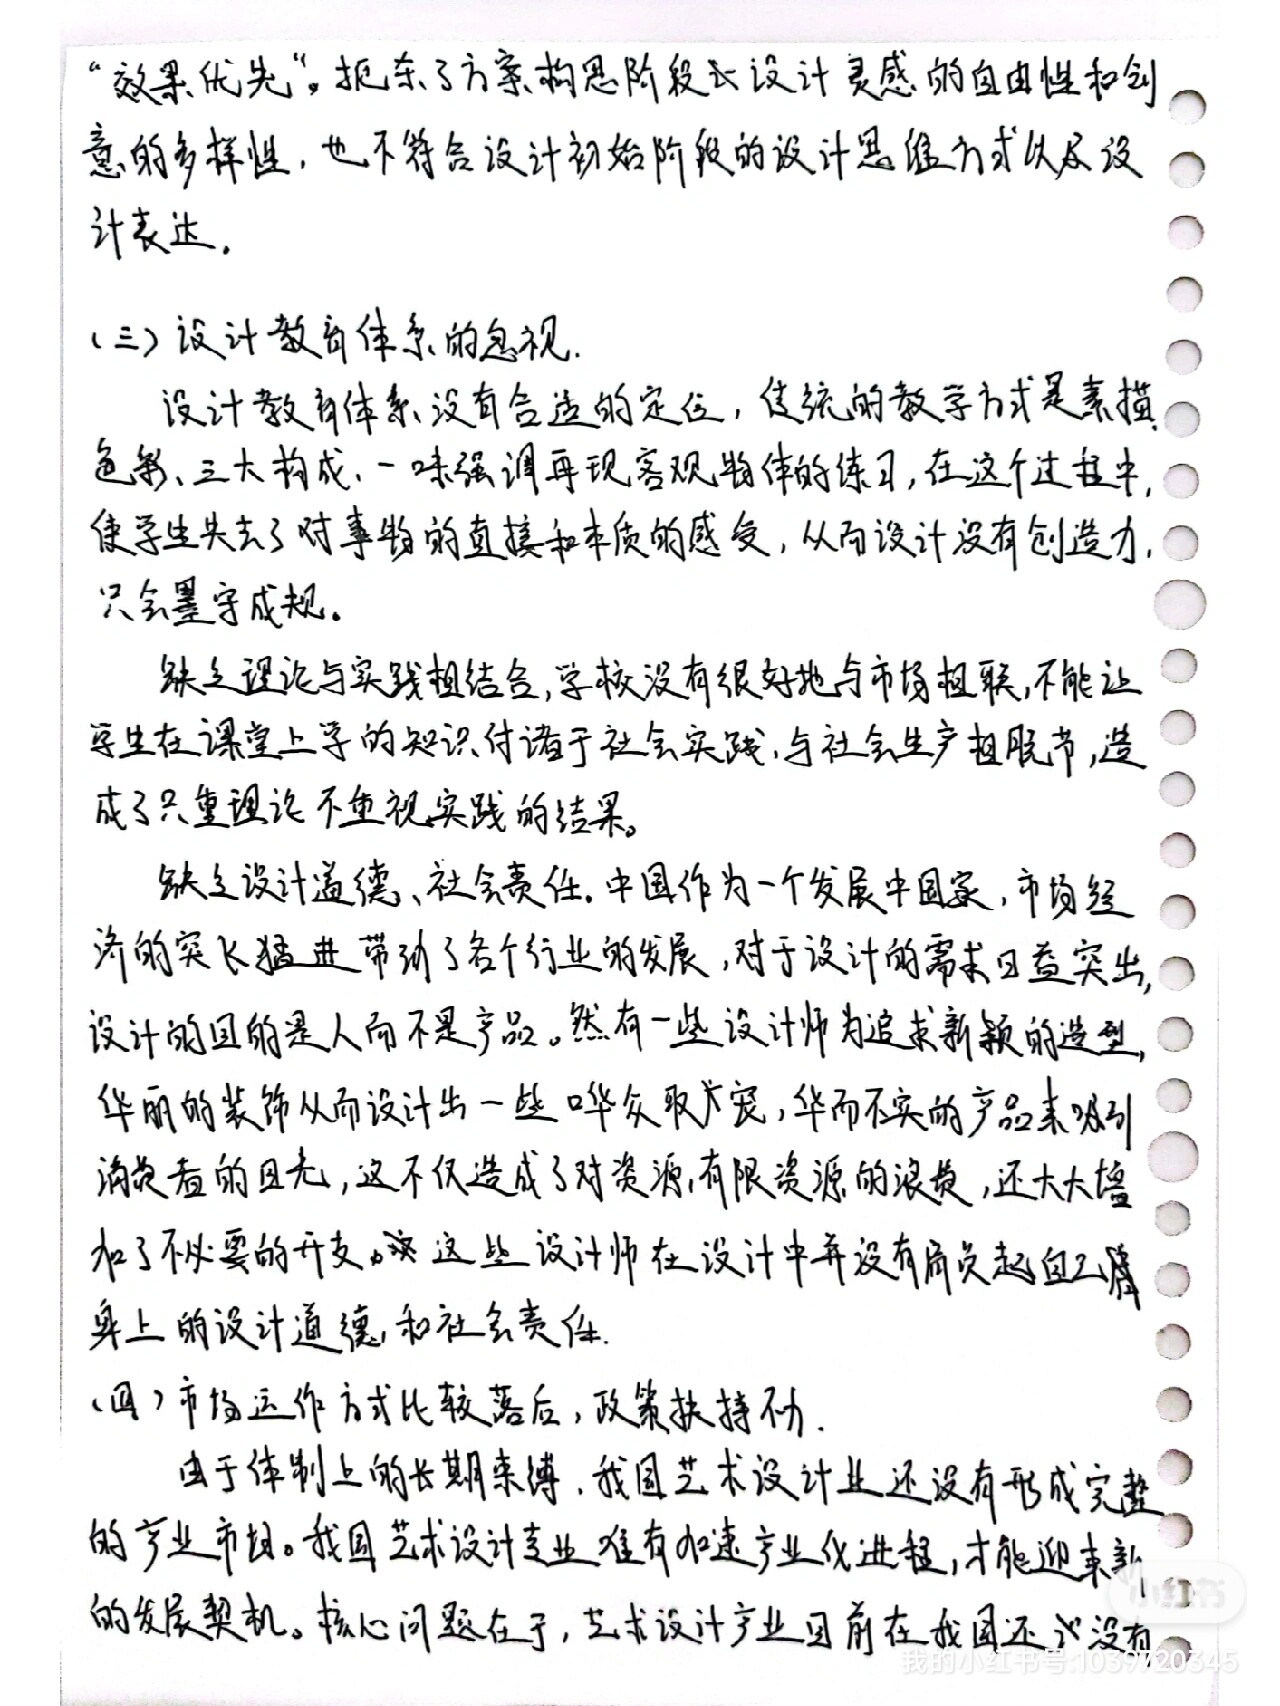 “效果优先”。扼杀了方案构思阶段设计灵感的自由性和创
意的多样性，也不符合设计初始阶段的设计思维方式以及设
计表达。
（三）设计教育体系的忽视.
设计教育体系没有合适的定位，传统的教学方式是素描、
色彩、三大构成、一味强调再现客观物体的练习，在这个过程中，
使学生失去了对事物的直接和本质的感受，从而设计没有创造力，
只会墨守成规。
缺乏理论与实践相结合，学校没有很好地与市场相联，不能让
学生在课堂上学的知识付诸于社会实践，与社会生产相脱节，造
成了只重理论不重视实践的结果。
缺乏设计道德、社会责任。中国作为一个发展中国家，市场经
济的突飞猛进带动了各个行业的发展，对于设计的需求日益突出，
设计的目的是人而不是产品。然有一些设计师为追求新颖的造型，
华丽的装饰从而设计出一些哗众取宠，华而不实的产品来吸引
消费者的目光，这不仅造成了对资源，有限资源的浪费，还大大增
加了不必要的开支。这些设计师在设计中并没有肩负起自己
身上的设计道德，和社会责任.
（四）市场运作方式比较落后，政策扶持不力.
由于体制上的长期束缚，我国艺术设计业还没有形成完整
的产业市场。我国艺术设计专业唯有加速产业化进程，才能迎来新
的发展契机。核心问题在于，艺术设计产业目前在我国还没有
小红书
我的小红书号:1039720345